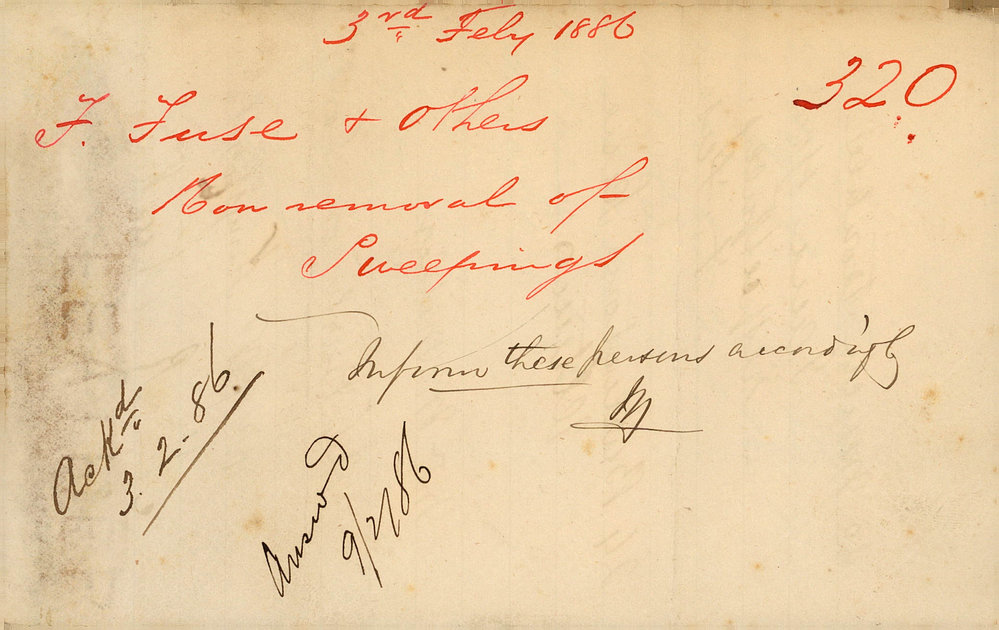 3rd Feby 1886
320
F. Fuse & Others
Non removal of
Sweepings
Inform these persons accordingly
Ackd
3.2.86.
Answd
9/2/86